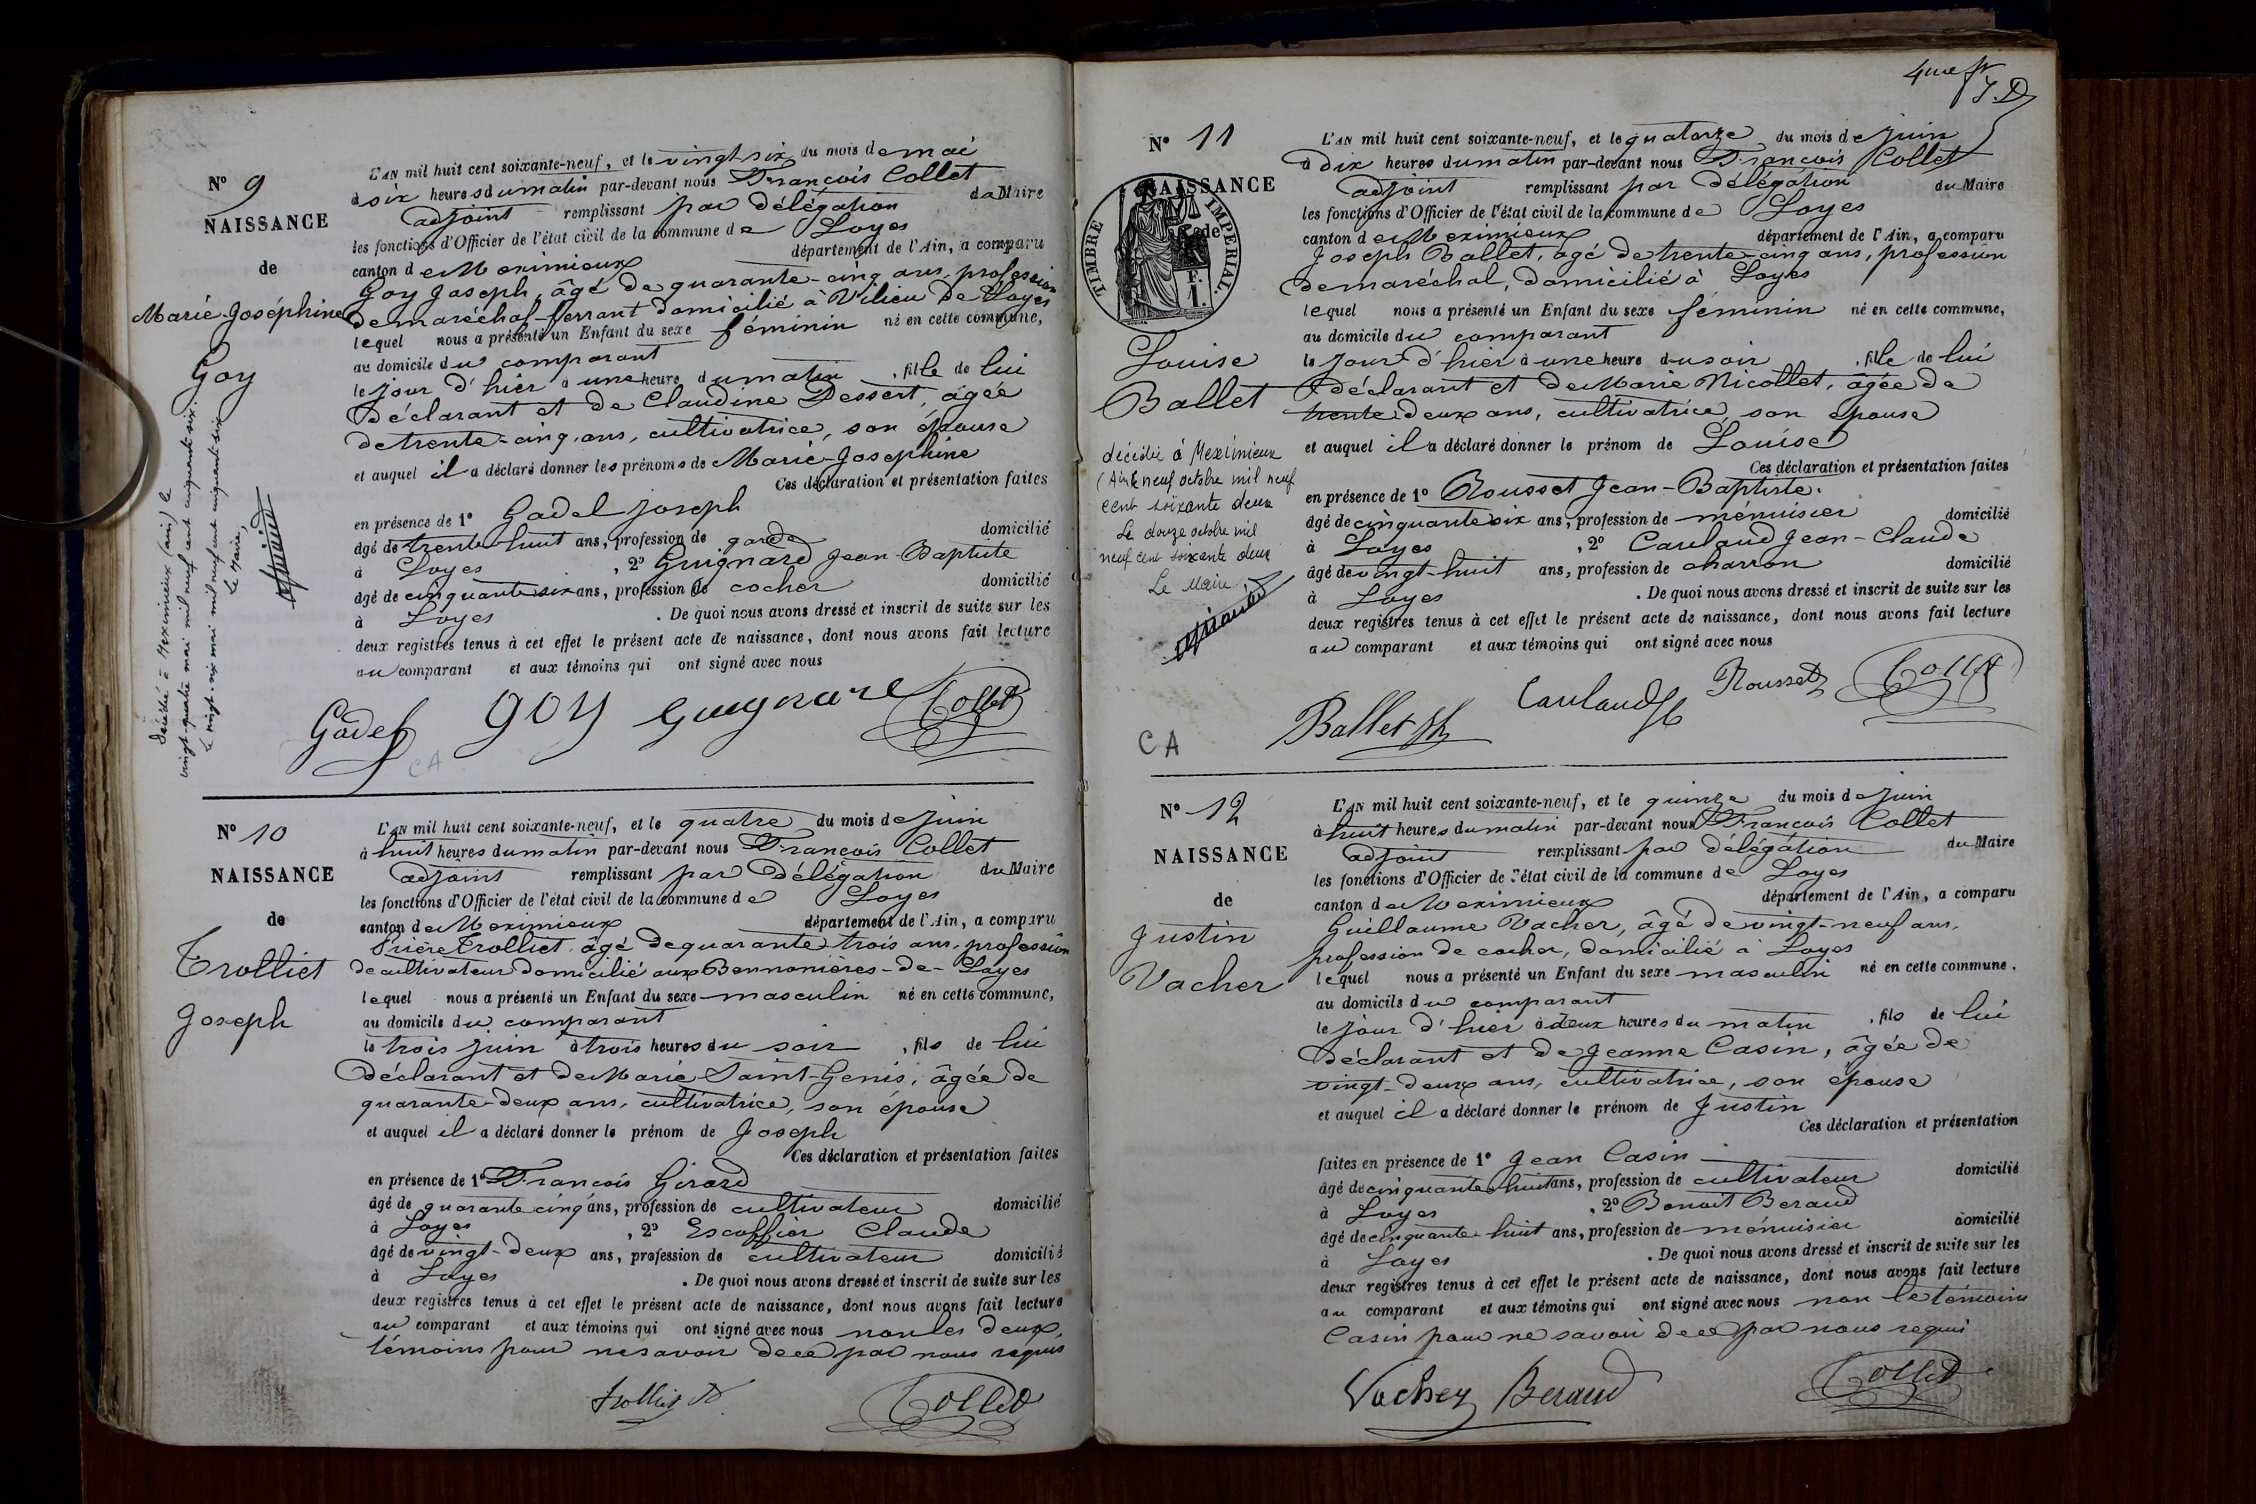 Nº 9
NAISSANCE
de
Marie-Joséphine
Goy
décédée à Meximieux (Ain) le
vingt-quatre mai mil neuf cent cinquante-six.
Le vingt-six mai mil neuf cent cinquante-six
Le Maire,
L'AN mil huit cent soixante-neuf, et le vingt-six du mois de mai
à six heures du matin par-devant nous François Collet
adjoint remplissant par délégation du Maire
les fonctions d'Officier de l'état civil de la commune de Loyes
canton de Meximieux département de l'Ain, a comparu
Goy Joseph, âgé de quarante-cinq ans, profession
de maréchal-ferrant domicilié à Vilieu de Loyes
lequel nous a présenté un Enfant du sexe féminin né en cette commune,
au domicile du comparant
le jour d'hier à une heure du matin , fille de lui
déclarant et de Claudine Dessert, âgée
de trente-cinq ans, cultivatrice, son épouse
et auquel il a déclaré donner les prénoms de Marie-Joséphine
Ces déclaration et présentation faites
en présence de 1º Gadel Joseph
âgé de trente-huit ans, profession de garde domicilié
à Loyes , 2º Guignard Jean-Baptiste
âgé de cinquante six ans, profession de cocher domicilié
à Loyes . De quoi nous avons dressé et inscrit de suite sur les
deux registres tenus à cet effet le présent acte de naissance, dont nous avons fait lecture
au comparant et aux témoins qui ont signé avec nous
Gadel goy Guignard Collet
CA
Nº 10
NAISSANCE
de
Trolliet
Joseph
L'AN mil huit cent soixante-neuf, et le quatre du mois de juin
à huit heures du matin par-devant nous François Collet
adjoint remplissant par délégation du Maire
les fonctions d'Officier de l'état civil de la commune de Loyes
canton de Meximieux département de l'Ain, a comparu
Trolliet, âgé de quarante trois ans, profession
de cultivateur domicilié aux Bennonières-de-Loyes
lequel nous a présenté un Enfant du sexe masculin né en cette commune,
au domicile du comparant
le trois juin à trois heures du soir , fils de lui
déclarant et de Marie Saint-Genis, âgée de
quarante-deux ans, cultivatrice, son épouse
et auquel il a déclaré donner le prénom de Joseph
Ces déclaration et présentation faites
en présence de 1º François Girard
âgé de quarante cinq ans, profession de cultivateur domicilié
à Loyes , 2º Escoffier Claude
âgé de vingt-deux ans, profession de cultivateur domicilié
à Loyes . De quoi nous avons dressé et inscrit de suite sur les
deux registres tenus à cet effet le présent acte de naissance, dont nous avons fait lecture
au comparant et aux témoins qui ont signé avec nous non les deux
témoins pour ne savoir de ce par nous requis
trolliet Collet
4me
Nº 11
NAISSANCE
de
TIMBRE IMPÉRIAL.
1 F.
Louise
Ballet
décédée à Meximieux
(Ain) le neuf octobre mil neuf
cent soixante deux
Le douze octobre mil
neuf cent soixante deux
Le Maire
L'AN mil huit cent soixante-neuf, et le quatorze du mois de juin
à dix heures du matin par-devant nous François Collet
adjoint remplissant par délégation du Maire
les fonctions d'Officier de l'état civil de la commune de Loyes
canton de Meximieux département de l'Ain, a comparu
Joseph Ballet, âgé de trente-cinq ans, profession
de maréchal, domicilié à Loyes
lequel nous a présenté un Enfant du sexe féminin né en cette commune,
au domicile du comparant
le jour d'hier à une heure du soir , fille de lui
déclarant et de Marie Nicollet, âgée de
trente deux ans, cultivatrice, son épouse
et auquel il a déclaré donner le prénom de Louise
Ces déclaration et présentation faites
en présence de 1º Rousset Jean-Baptiste.
âgé de cinquante six ans, profession de ménuisier domicilié
à Loyes , 2º Carlaud Jean-Claude
âgé de vingt-huit ans, profession de charron domicilié
à Loyes . De quoi nous avons dressé et inscrit de suite sur les
deux registres tenus à cet effet le présent acte de naissance, dont nous avons fait lecture
au comparant et aux témoins qui ont signé avec nous
Ballet Carlaud Rousset Collet
CA
Nº 12
NAISSANCE
de
Justin
Vacher
L'AN mil huit cent soixante-neuf, et le quinze du mois de juin
à huit heures du matin par-devant nous François Collet
adjoint remplissant par délégation du Maire
les fonctions d'Officier de l'état civil de la commune de Loyes
canton de Meximieux département de l'Ain, a comparu
Guillaume Vacher, âgé de vingt-neuf ans,
profession de cocher, domicilié à Loyes
lequel nous a présenté un Enfant du sexe masculin né en cette commune.
au domicile du comparant
le jour d'hier à deux heures du matin , fils de lui
déclarant et de Jeanne Casin, âgée de
vingt-deux ans, cultivatrice, son épouse
et auquel il a déclaré donner le prénom de Justin
Ces déclaration et présentation
faites en présence de 1º Jean Casin
âgé de cinquante huit ans, profession de cultivateur domicilié
à Loyes , 2º Benoit Beraud
âgé de cinquante-huit ans, profession de ménuisier domicilié
à Loyes . De quoi nous avons dressé et inscrit de suite sur les
deux registres tenus à cet effet le présent acte de naissance, dont nous avons fait lecture
au comparant et aux témoins qui ont signé avec nous non le témoin
Casin pour ne savoir de ce par nous requis
Vacher Beraud Collet